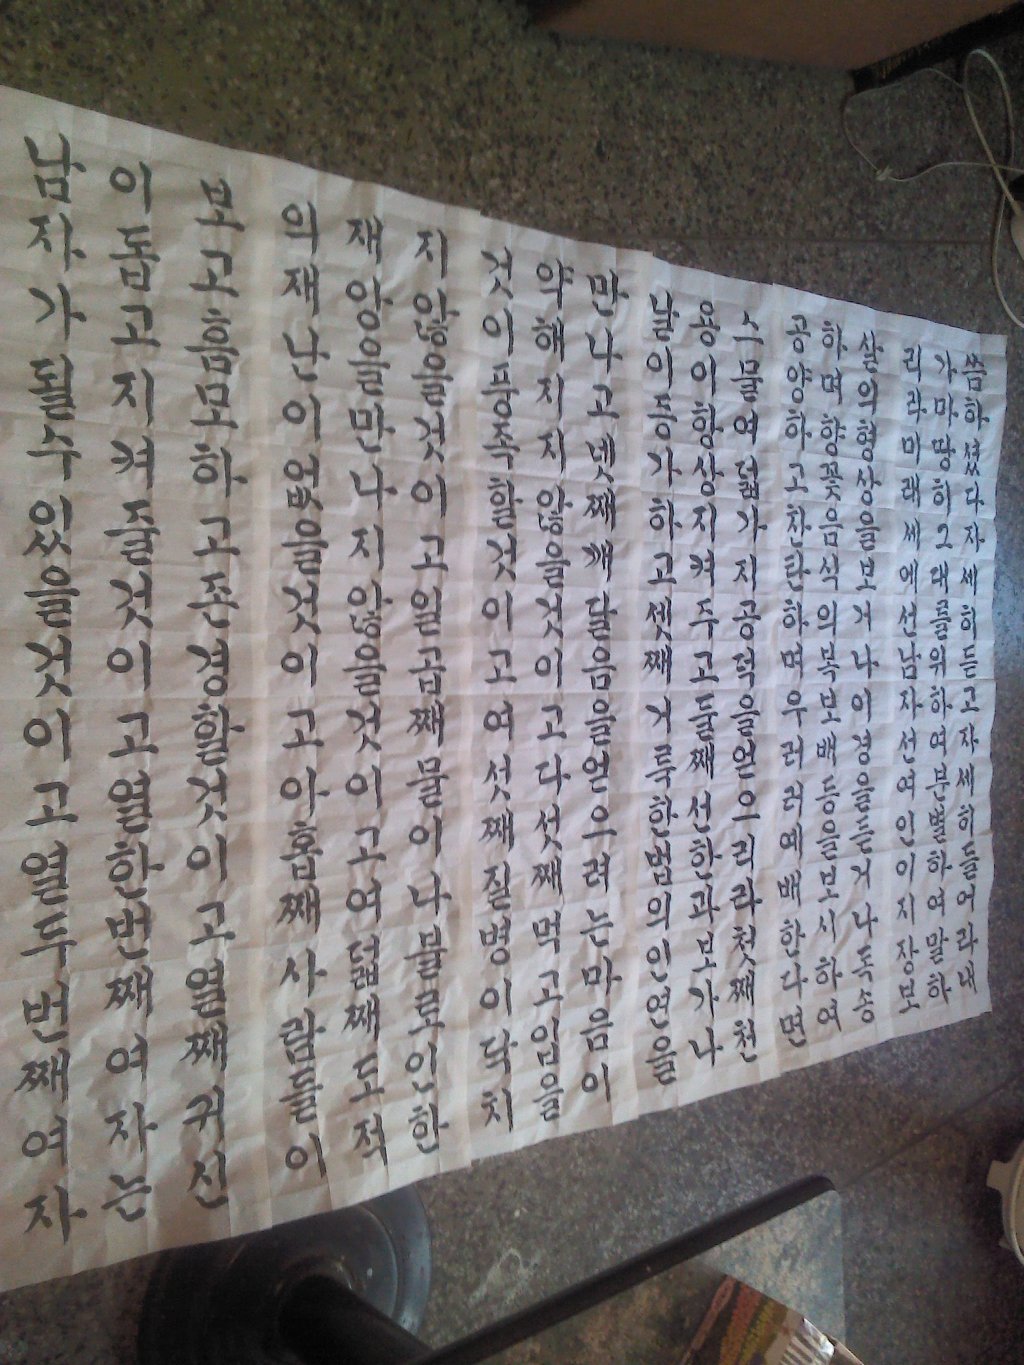 씀하셨다자세히듣고자세히들어라내
가마땅히그대들위하여분별하여말하
리라미래세에선남자선여인이지장보
살의형상을보거나이경을듣거나독송
하며향꽃음식의복보배등을보시하여
공양하고찬탄하며우러러예배한다면
스물여덟가지공덕을얻으리라첫째천
용이항상지켜주고둘째선한과보가나
날이증가하고셋째거룩한법의인연을
만나고넷째깨달음을얻으려는마음이
약해지지않을것이고다섯째먹고입을
것이풍족할것이고여섯째질병이닥치
지않을것이고일곱째물이나불로인한
재앙을만나지않을것이고여덟째도적
의재난이없을것이고아홉째사람들이
보고흠모하고존경할것이고열째귀신
이돕고지켜줄것이고열한번째여자는
남자가될수있을것이고열두번째여자